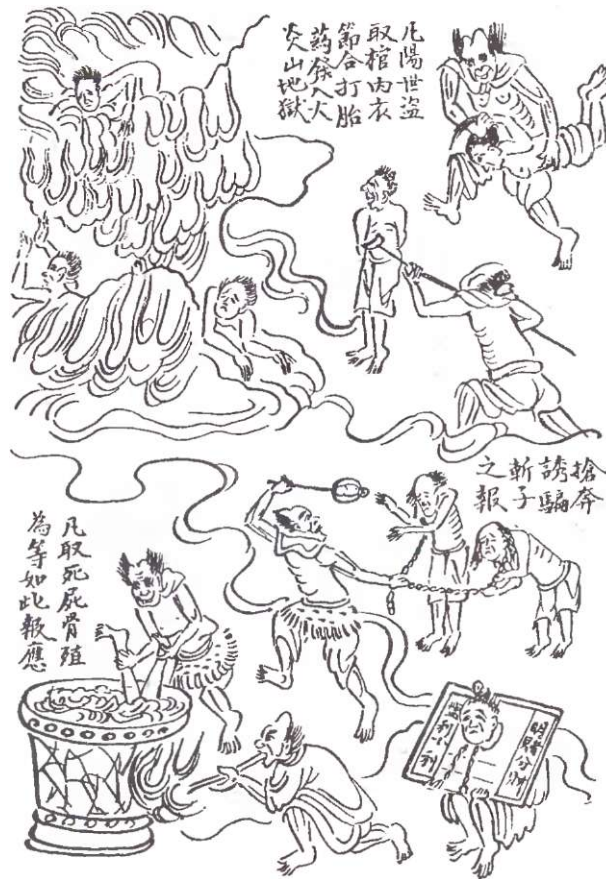 凡陽世盜
取棺內衣
節合打胎
藥餜入火
炎山地獄
搶奔
誘騙
斬子
之報
凡取死屍骨殖
為等如此報應
明賭分